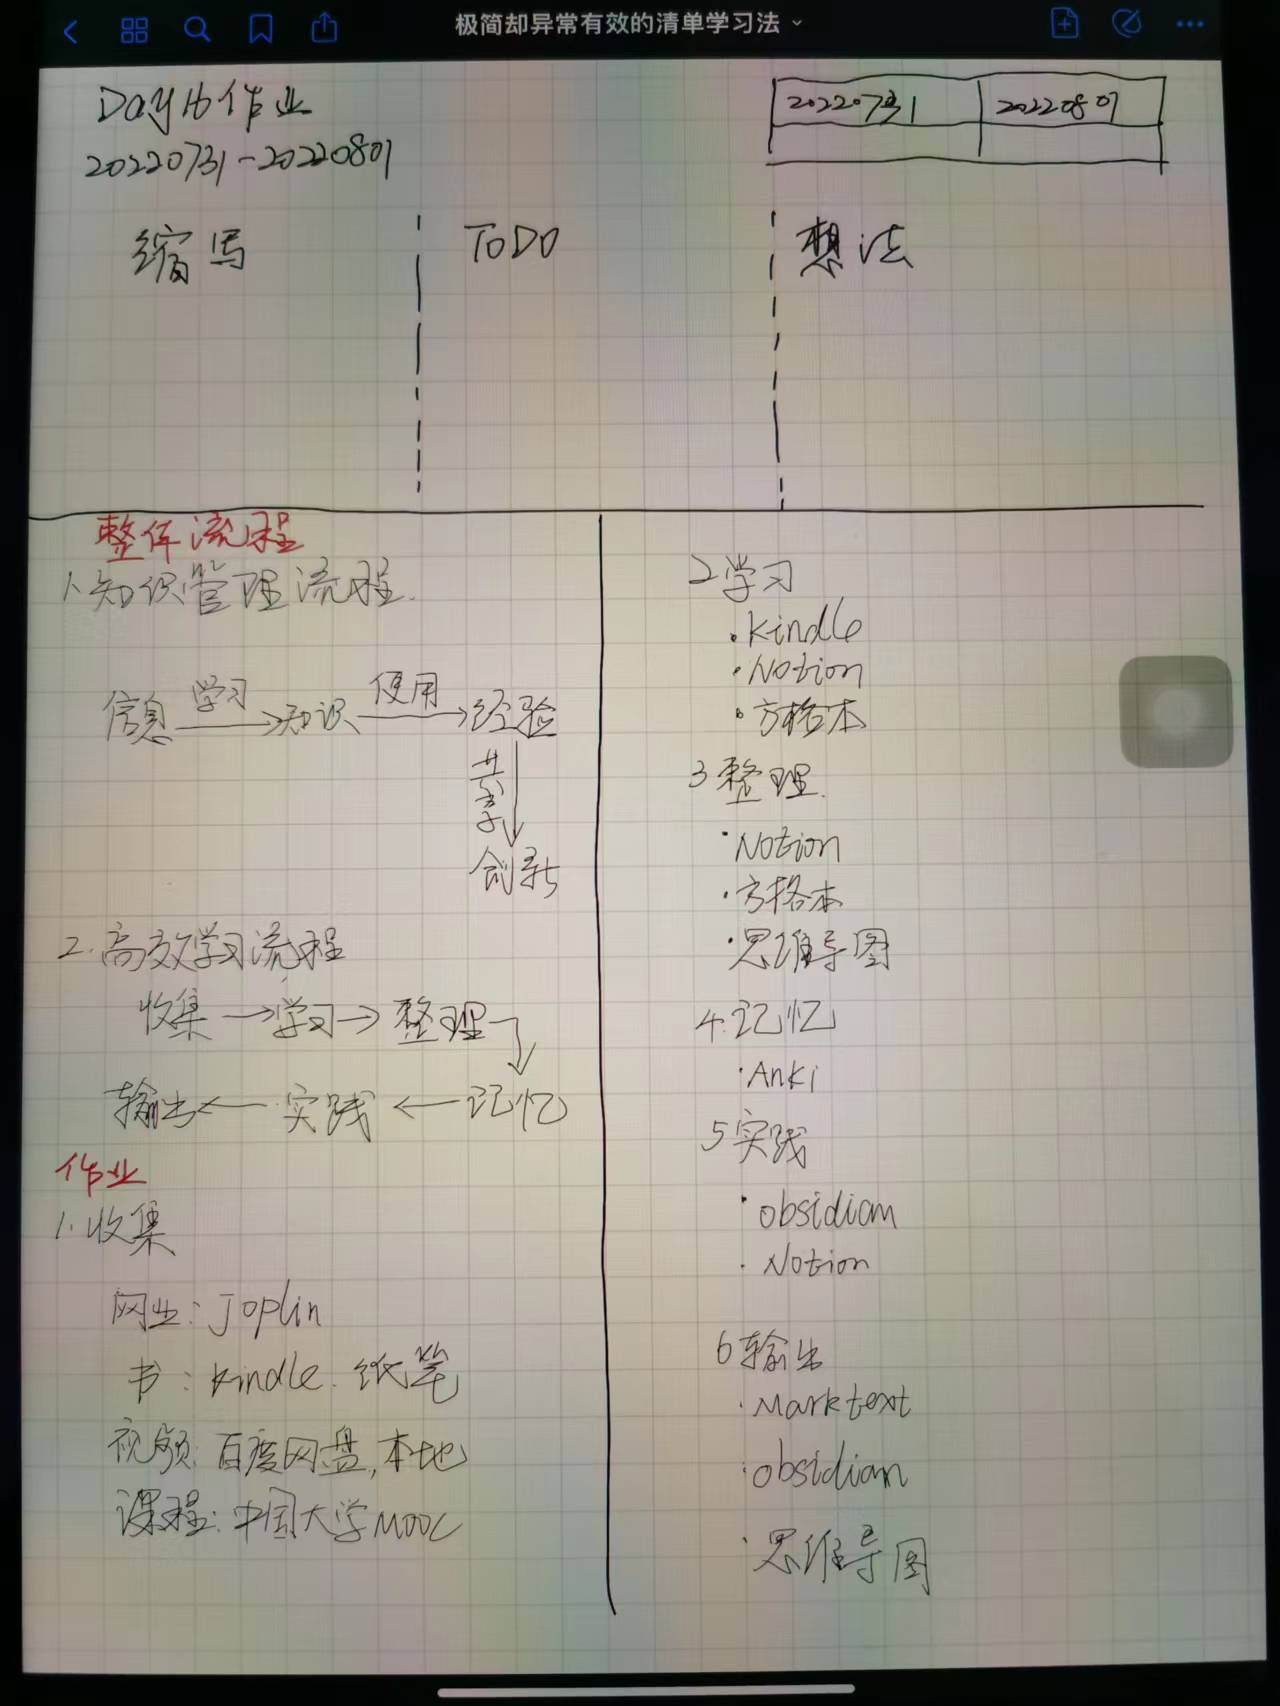 极简却异常有效的清单学习法
Day16作业
20220731-20220801
20220731 20220801
缩写 TODO 想法
整体流程
1.知识管理流程.
信息 学习 知识 使用 经验
共享
创新
2.高效学习流程
收集→学习→整理
输出←实践←记忆
作业
1.收集
网业:Joplin
书:Kindle.纸笔
视频:百度网盘,本地
课程:中国大学MOOC
2学习
·Kindle
·Notion
·方格本
3整理.
·Notion
·方格本
·思维导图
4.记忆
·Anki
5实践
·obsidian
·Notion
6输出
·Marktext
·obsidian
·思维导图